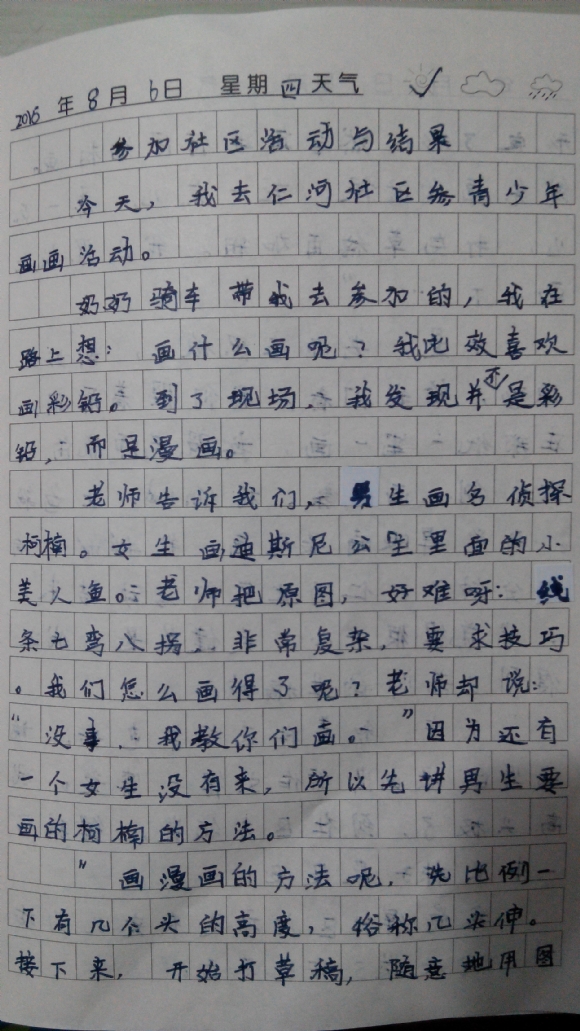 2015 年 8 月 6 日 星期 四 天气 ✓
参加社区活动与结果
今天，我去仁河社区参青少年
画画活动。
奶奶骑车带我去参加的，我在
路上想：画什么画呢？我比效喜欢
画彩铅。到了现场，我发现并不是彩
铅，而是漫画。
老师告诉我们，男生画名侦探
柯楠。女生画迪斯尼公主里面的小
美人鱼。老师把原图，好难呀：线
条七弯八拐，非常复杂，要求技巧
。我们怎么画得了呢？老师却说：
“没事，我教你们画。”因为还有
一个女生没有来，所以先讲男生要
画的柯楠的方法。
“画漫画的方法呢，先比例一
下有几个头的高度，俗称几头伸。
接下来，开始打草稿，随意地用图